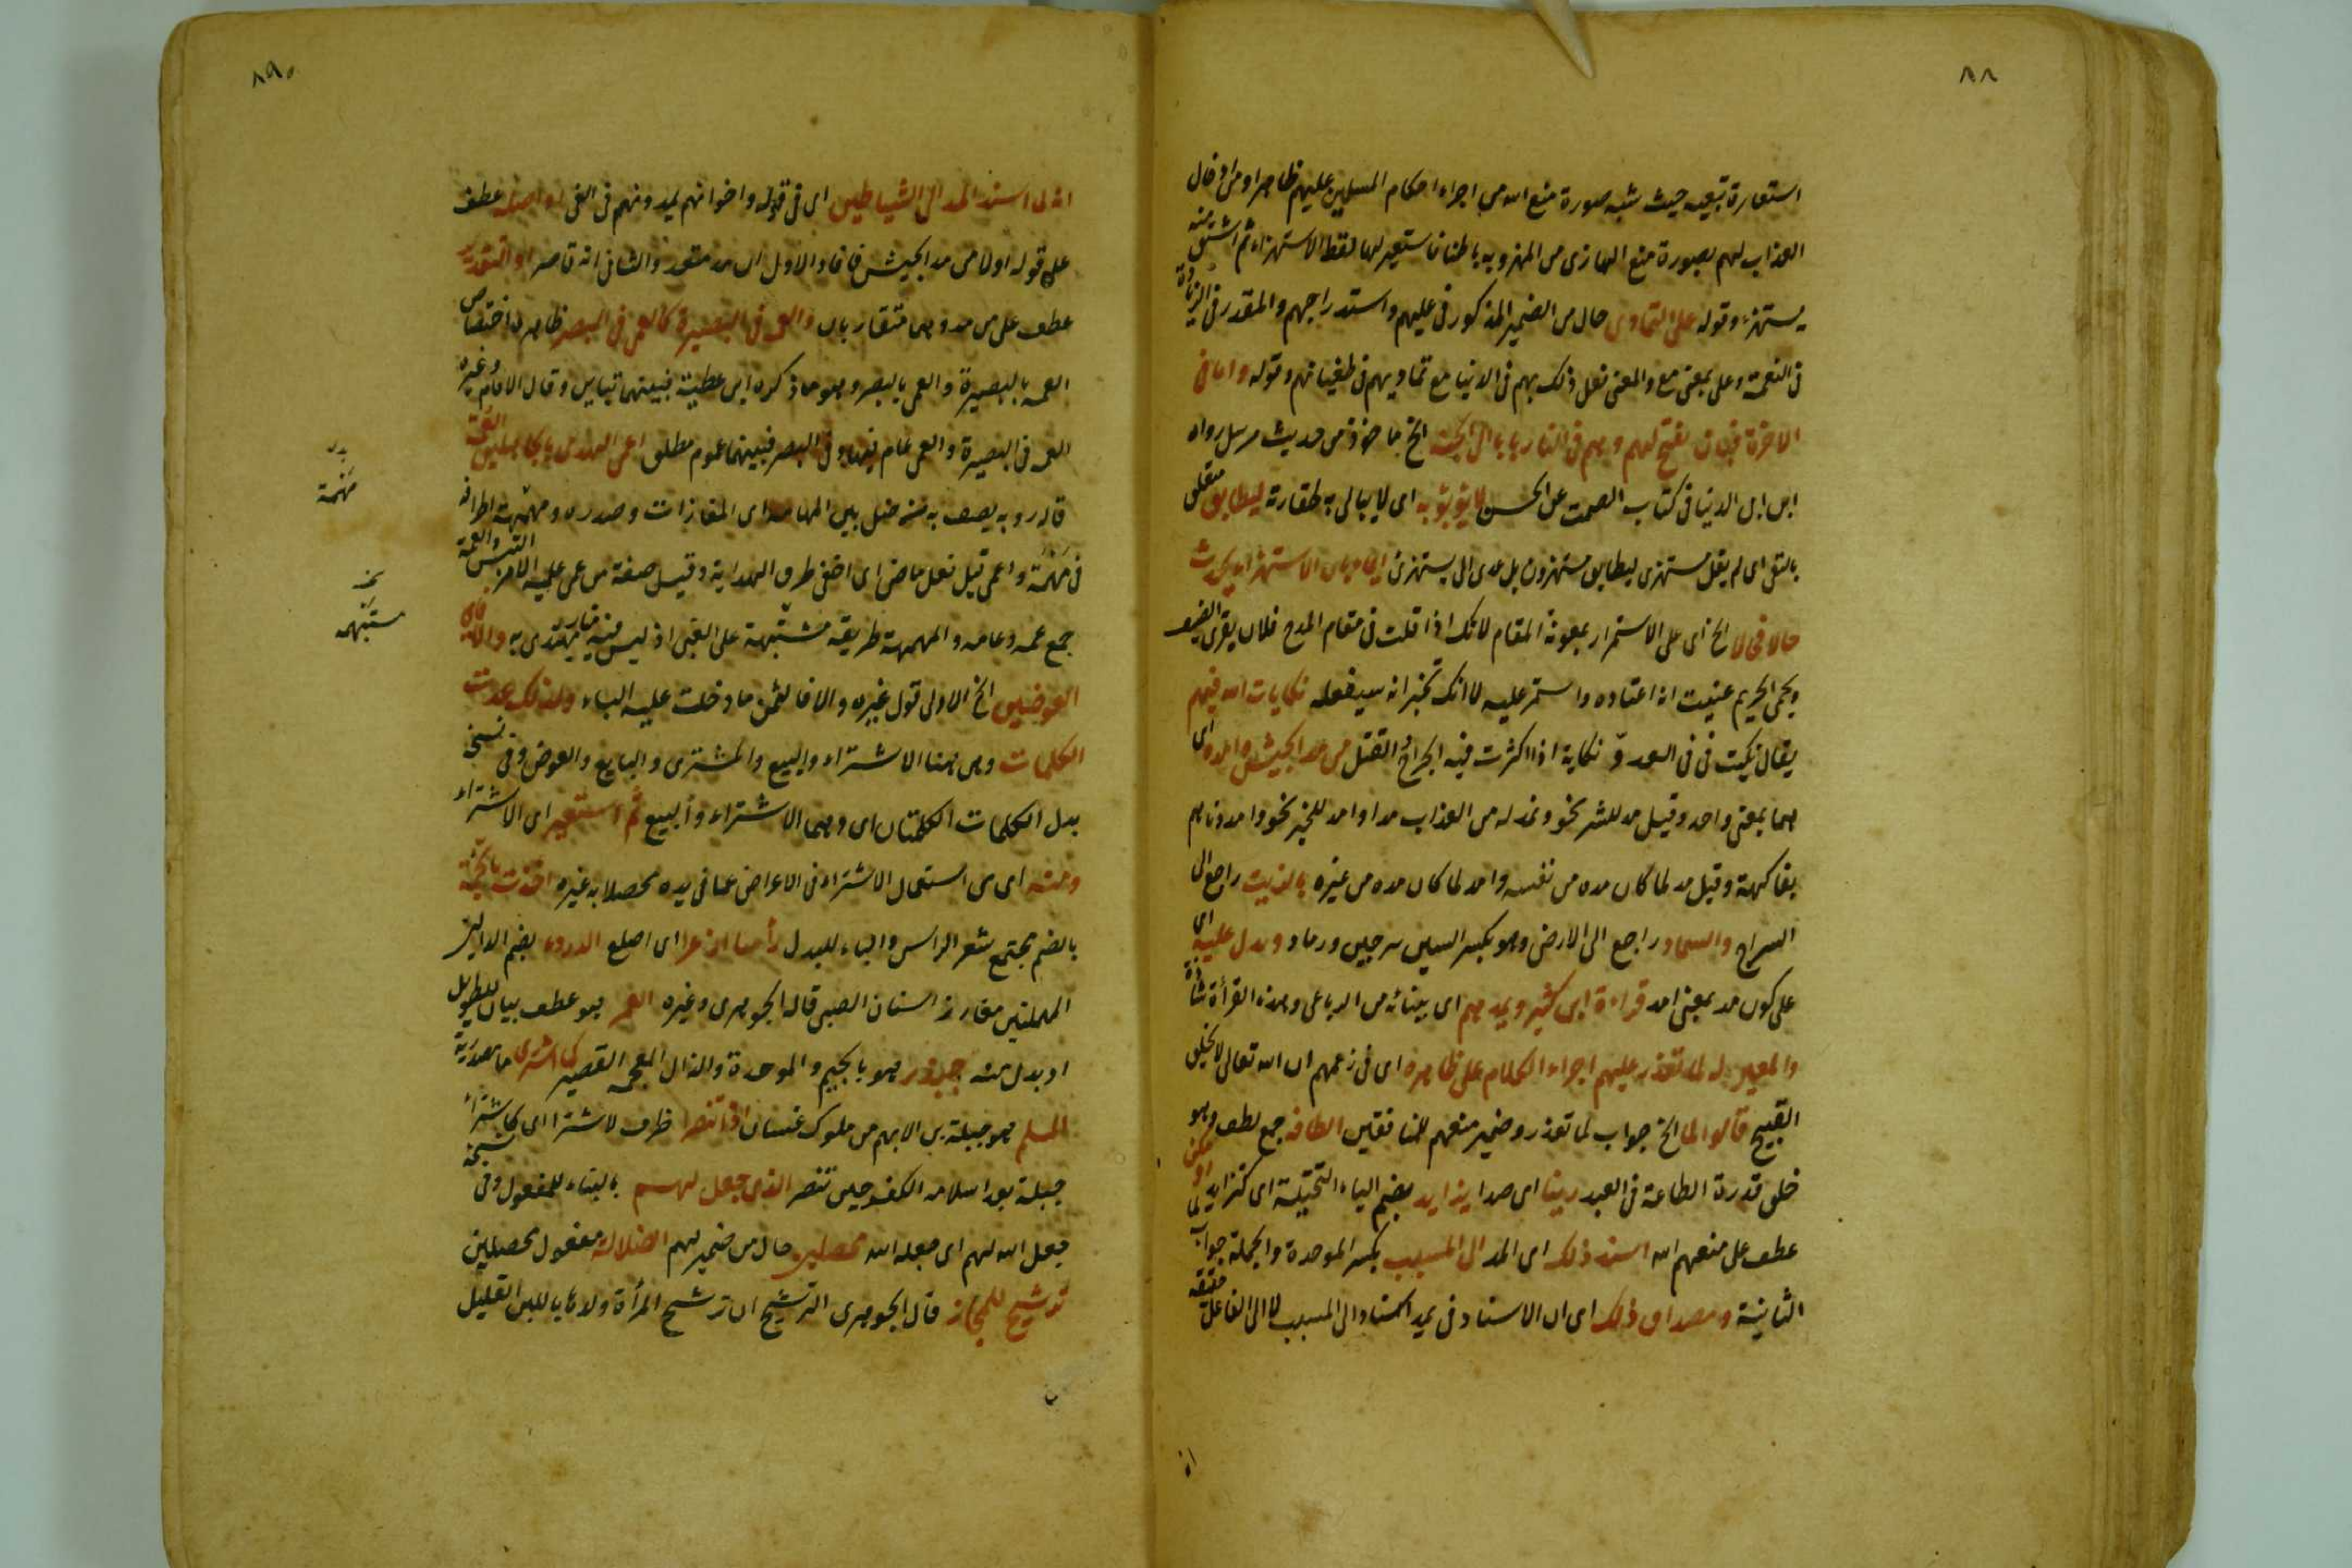 ٨٨
استعارة تبعية حيث شبه صورة منع الله من اجراء احكام المسلمين عليهم ظاهرا ومن ادخال
العذاب لهم بصورة منع الهازى من المهزو به باطنا فاستعير لها لفظ الاستهزاء ثم اشتق منه
يستهزء وقوله على التمادى حال من الضمير المذكور فى عليهم واستدراجهم والمقدر فى الزيادة
فى النعمة وعلى بمعنى مع والمعنى فعل ذلك بهم فى الدنيا مع تماديهم فى طغيانهم وقوله واما فى
الاخرة فبان يفتح لهم وهم فى النار بابا الى الجنة الخ ماخوذ من حديث مرسل رواه
ابن ابى الدنيا فى كتاب الصمت عن الحسن لا يؤبؤ به اى لا يبالى به لحقارته ليطابق متعلق
بالنفى اى لم يقل مستهزى ليطابق مستهزون بل عدل الى يستهزئ ايماء بان الاستهزاء يحدث
حالا فحالا الخ اى على الاستمرار بمعونة المقام لانك اذا قلت فى مقام المدح فلان يقرى الضيف
ويحمى الحريم عنيت انه اعتاده واستمر عليه لا انك تخبر انه سيفعله نكايات الله فيهم
يقال نكيت فى العدو نكاية اذا اكثرت فيه الجراح والقتل من مد الجيش وامده اى
هما بمعنى واحد وقيل مد للشر نحو ونمد له من العذاب مدا وامد للخير نحو وامددناهم
بفاكهة وقيل مد لما كان مده من نفسه وامد لما كان مده من غيره بالزيت راجع الى
السراج والسماد راجع الى الارض وهو بكسر السين سرجين ورماد ويدل عليه اى
على كون مد بمعنى امد قراءة ابن كثير ويمدهم اى بينائه من الرباعى وهذه القرأة شاذة
والمعتزلة لما تعذر عليهم اجراء الكلام على ظاهره اى فى زعمهم ان الله تعالى لا يخلق
القبيح قالوا لما الخ جواب لما تعذر وضمير منعهم للمنافقين الطافه جمع لطف وهو
خلق قدرة الطاعة فى العبد رينا اى صدا يزايد بضم الياء التحتية اى كتزايد او مكن
عطف على منعهم الله اسند ذلك اى المد الى المسبب بكسر الموحدة والجملة جواب لما
الثانية ومصداق ذلك اى ان الاسناد فى يمد اسناد الى المسبب لا الى الفاعل حقيقة
٨٩
انه لما اسند المد الى الشياطين اى فى قوله واخوانهم يمدونهم فى الغى او اصله عطف
على قوله اولا من مد الجيش فافاد الاول ان مد متعد والثانى انه قاصر او التقدير
عطف على من مد وهما متقاربان والعمه فى البصيرة كالعمى فى البصر ظاهره اختصاص
العمه بالبصيرة والعمى بالبصر وهو ما ذكره ابن عطية فبينهما تباين وقال الامام وغيره
العمه فى البصيرة والعمى عام فيها وفى البصر فبينهما عموم مطلق اعمى الهدى بالجاهلين العمه
قاله روبه يصف به منه ضل بين المهامه اى المفازات وصدره ومهمه اطرافه
فى مهمه واعمى قيل فعل ماض اى اخفى طرق الهداية وقيل صفة من عمى عليه الامر التبس والعمه
جمع عمه وعامه والمهمهة طريقه مشتبهة على الغبى اذ ليس فيه منار يهتدى به والا فاى
العوضين الخ الاولى قول غيره والا فالثمن ما دخلت عليه الباء ولذلك عدت
الكلمات وهى ههنا الاشتراء والبيع والمشترى والبايع والعوض وفى نسخ
بدل الكلمات الكلمتان اى وهما الاشتراء والبيع ثم استعير اى الاشتراء
ومنه اى من استعمال الاشتراء فى الاعراض عما فى يده محصلا به غيره اخذت بالجمة
بالضم مجتمع شعر الراس والباء للبدل رأسا ازعرا اى اصلع الدردر بضم الدالين
المهملتين مغارز اسنان الصبى قاله الجوهرى وغيره العمر هو عطف بيان للطويل
او بدل منه جيذر هو بالجيم والموحدة والذال المعجمة القصير كما اشترى ما مصدرية
المسلم هو جبلة بن الايهم من ملوك غسان اذ تنصرا ظرف لاشترا اى كاشتراء
جبلة بعد اسلامه الكفر حين تنصر الذى جعل لهم بالبناء للمفعول وفى نسخة
جعل الله لهم اى جعله الله محصلين حال من ضمير لهم الضلالة مفعول محصلين
ترشيح للمجاز قال الجوهرى الترشيح ان ترشح المرأة ولدها باللبن القليل
بدل
مهمة
مشتبهه